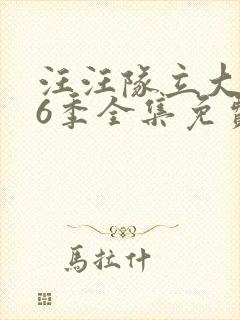 汪汪隊立大
6季全集免費
馬拉什